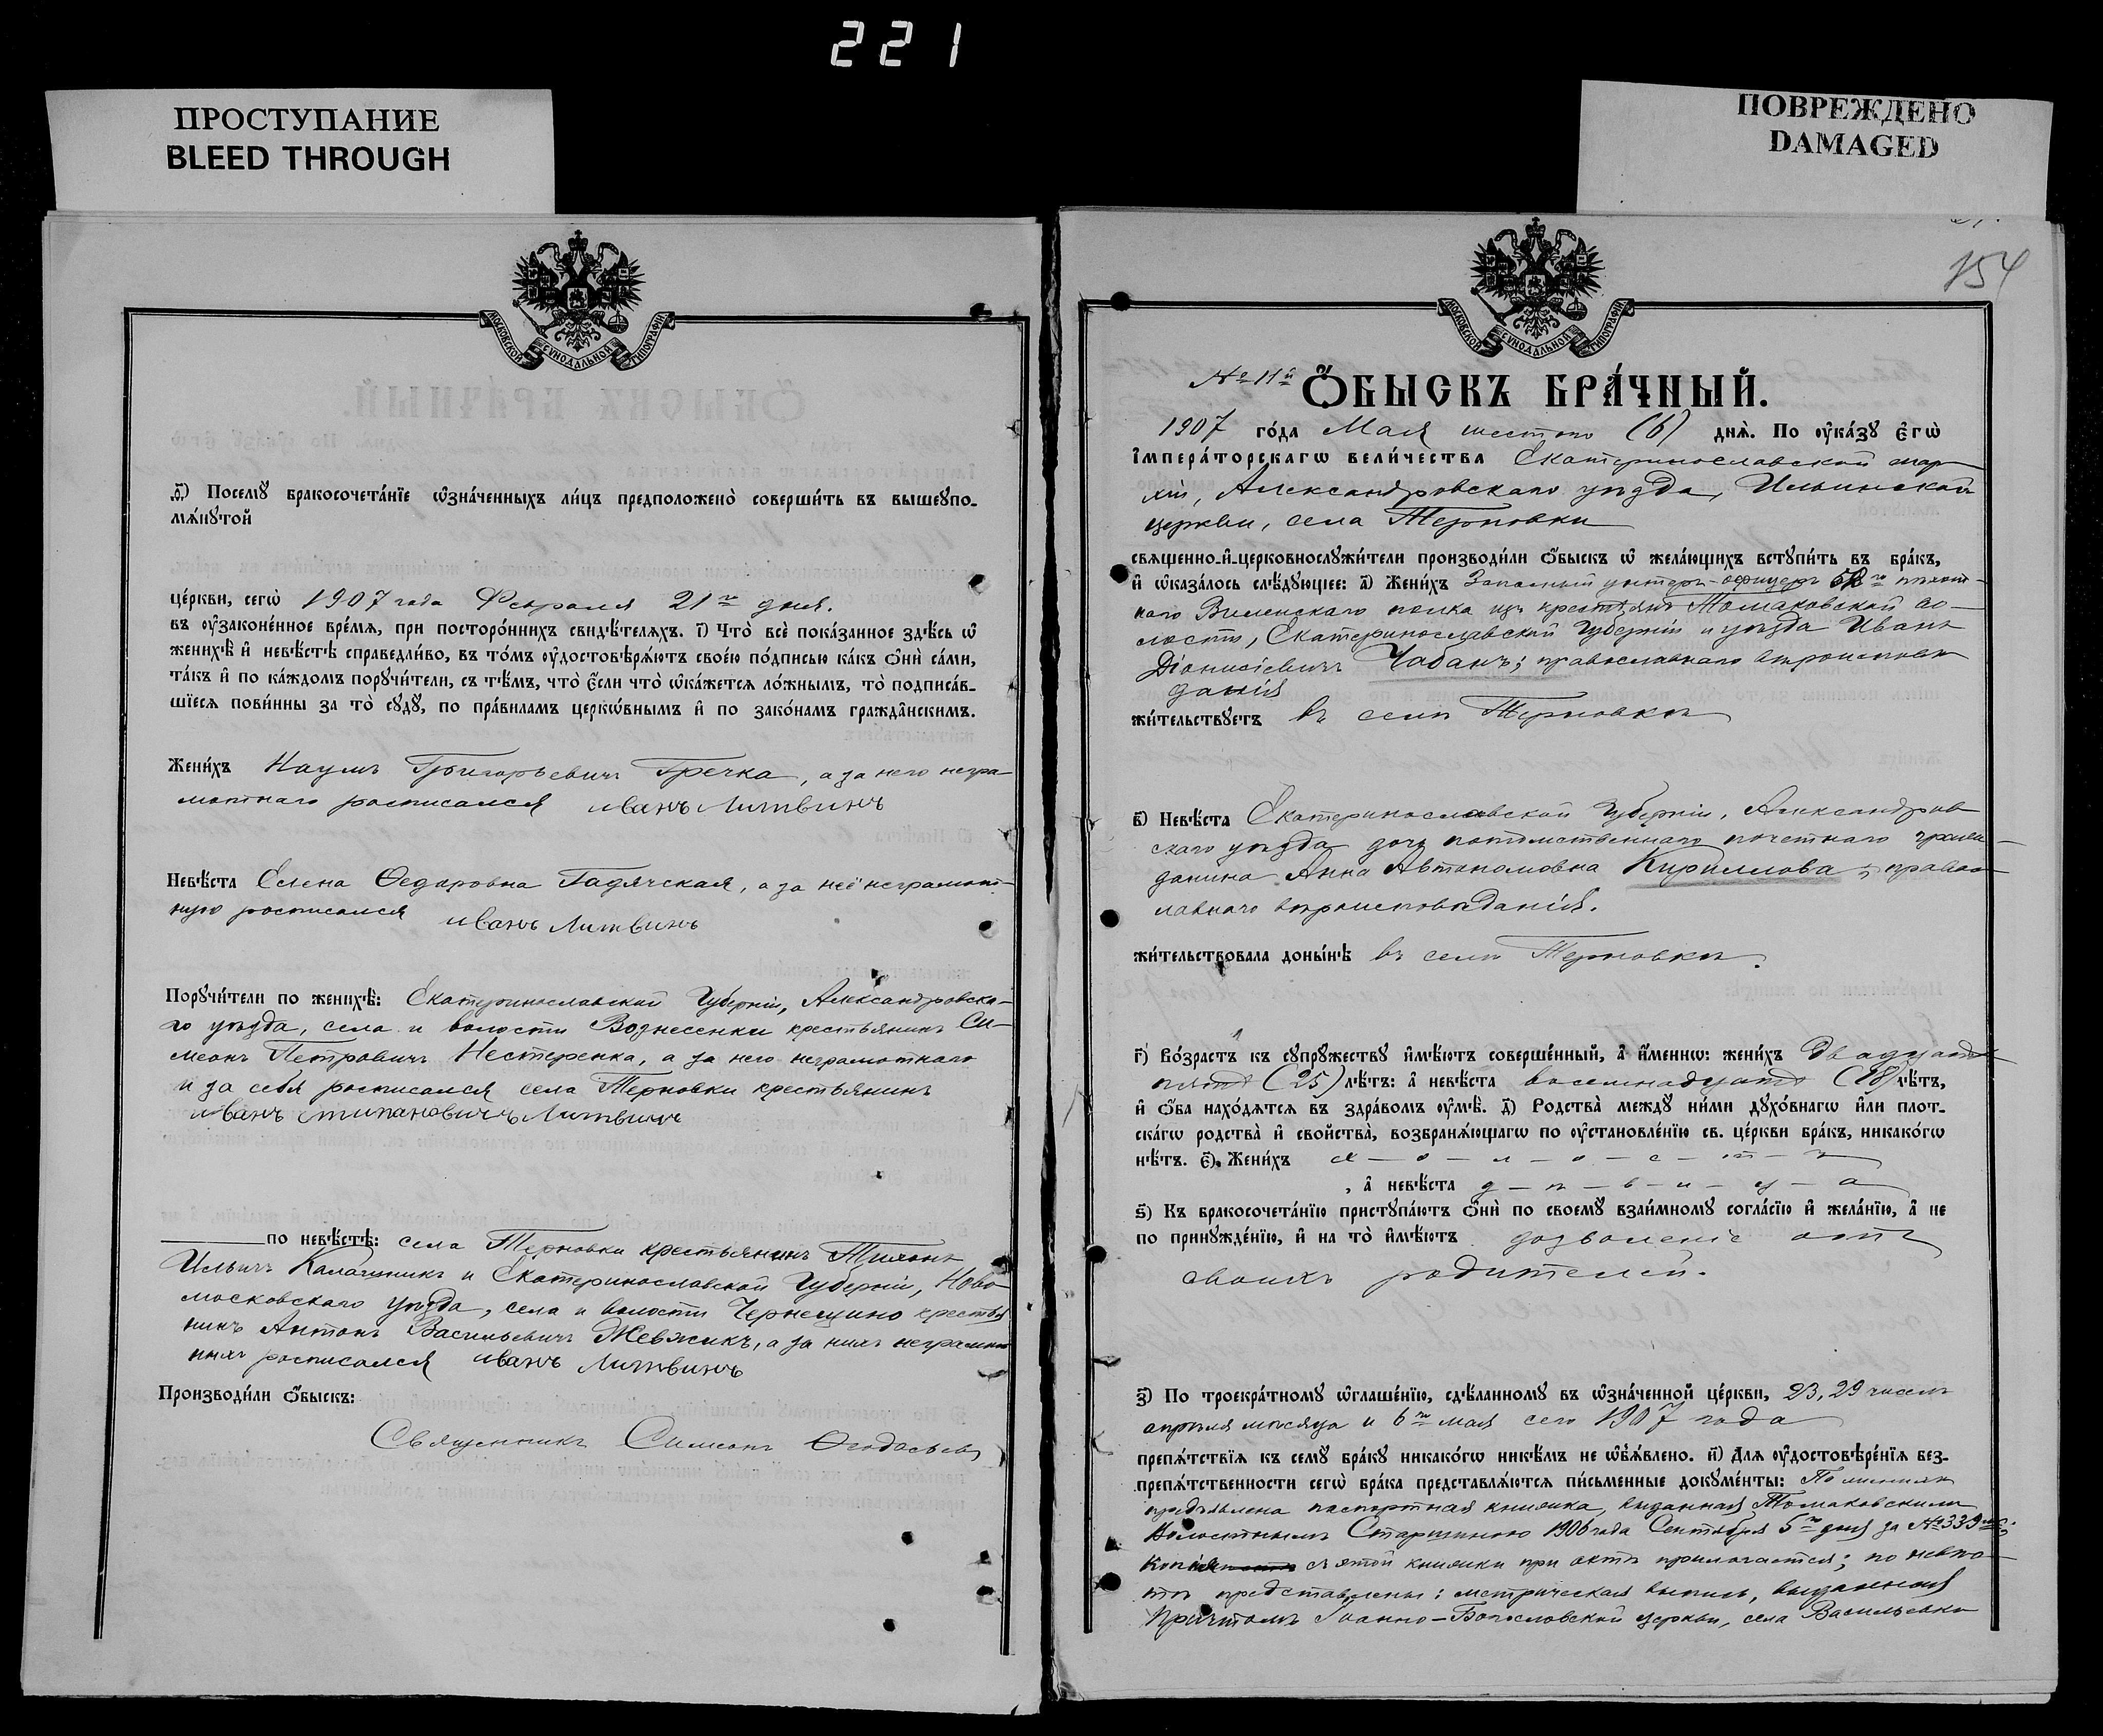 221
ПРОСТУПАНИЕ
BLEED THROUGH
ПОВРЕЖДЕНО
DAMAGED
МОСКОВСКОЙ СѴНОДАЛЬНОЙ ТИПОГРАФІИ
ѳ҃) Посемꙋ бракосочета́нїе ѡ҆зна́ченныхъ ли́цъ предположено̀ соверши́ть въ вышеꙋпо-
мѧ́нꙋтой
це́ркви, сегѡ̀ 1907 года Февраля 21го дня.
въ ᲂу҆законе́нное вре́мѧ, при посторо́ннихъ свидѣ́телѧхъ. і҃) Что̀ всѐ пока́занное здѣ́сь ѡ҆
женихѣ̀ и҆ невѣ́стѣ справедли́во, въ то́мъ ᲂу҆достовѣрѧ́ютъ свое́ю по́дписью ка́къ ѻ҆нѝ са́ми,
та́къ и҆ по ка́ждомъ порꙋчи́тели, съ тѣ́мъ, что̀ є҆́сли что̀ ѡ҆ка́жетсѧ ло́жнымъ, то̀ подписа́в-
шїесѧ пови́нны за то̀ сꙋдꙋ̀, по пра́виламъ церкѡ́внымъ и҆ по зако́намъ гражда̑нскимъ.
Жени́хъ Наумъ Григорьевичъ Гречка, а за него негра-
мотнаго росписался иванъ Литвинъ
Невѣ́ста Елена Ѳедоровна Гадячская, а за неё неграмот-
ную росписался иванъ Литвинъ
Порꙋчи́тели по женихѣ̀: Екатеринославской Губерніи, Александровска-
го уѣзда, села и волости Вознесенки крестьянинъ Си-
меонъ Петровичъ Нестеренка, а за него неграмотнаго
и за себя росписался села Терновки крестьянинъ
иванъ Стипановичъ Литвинъ
по невѣ́стѣ: села Терновки крестьянинъ Тихонъ
Ильичъ Калачникъ и Екатеринославской Губерніи, Ново-
московскаго уѣзда, села и волости Чернещино крестья
нинъ Антонъ Васильевичъ Жевжикъ, а за нихъ неграмот
ныхъ росписался иванъ Литвинъ
Производи́ли ѻ҆́быскъ:
Священникъ Симеонъ Ѳеодосьев
154
№ 11й Ѻ҆́БЫСКЪ БРА́ЧНЫЙ.
1907 го́да Мая шестого (6) днѧ̀. По ᲂу҆ка́зꙋ є҆гѡ̀
і҆мпера́торскагѡ вели́чества Екатеринославской епар
хіи, Александровскаго уѣзда, Ильинской
церкви, села Терновки
свѧщенно-и҆-церковнослꙋжи́тели производи́ли ѻ҆́быскъ ѡ҆ жела́ющихъ встꙋпи́ть въ бра́къ,
и҆ ѡ҆каза́лось слѣ́дꙋющее: а҃) Жени́хъ Запасный унтеръ-офицеръ 52го пѣхот-
наго Виленскаго полка изъ крестьянъ Томаковской во-
лости, Екатеринославской Губерніи и уѣзда Иванъ
Діонисіевичъ Чабанъ; православнаго вѣроисповѣ
данія
жи́тельствꙋетъ въ селѣ Терновкѣ
в҃) Невѣ́ста Екатеринославской Губерніи, Александров
скаго уѣзда дочь потомственнаго почетнаго гражда-
данина Анна Автономовна Кириллова; правос-
лавнаго вѣроисповѣданія.
жи́тельствовала доны́нѣ въ селѣ Терновкѣ.
г҃) Во́зрастъ къ сꙋпрꙋ́жествꙋ и҆мѣ́ютъ соверше́нный, а҆ и҆́меннѡ: жени́хъ двадцать
пять (25) лѣ́тъ: а҆ невѣ́ста восемнадцать (18) лѣ́тъ,
и҆ ѻ҆́ба нахо́дѧтсѧ въ здра́вомъ ᲂу҆мѣ̀. д҃) Родства̀ междꙋ̀ ни́ми дꙋхо́внагѡ и҆ли плот-
ска́гѡ родства̀ и҆ свойства̀, возбранѧ́ющагѡ по ᲂу҆становле́нїю св. це́ркви бра́къ, никако́гѡ
нѣ́тъ. є҃) Жени́хъ х – о – л – о – с – т – ъ
, а҆ невѣ́ста д – ѣ – в – и – ц – а
ѕ҃) Къ бракосочета́нїю пристꙋпа́ютъ ѻ҆нѝ по своемꙋ̀ взаи́мномꙋ согла́сїю и҆ жела́нїю, а҆ не
по принꙋжде́нїю, и҆ на то̀ и҆мѣ́ютъ дозволеніе отъ
своихъ родителей.
з҃) По троекра́тномꙋ ѡ҆глаше́нїю, сдѣ́ланномꙋ въ ѡ҆зна́ченной це́ркви, 23, 29 чиселъ
апрѣля мѣсяца и 6го мая сего 1907 года
препѧ́тствїѧ къ семꙋ̀ бра́кꙋ никако́гѡ никѣ́мъ не ѡ҆б̾ѧ́влено. и҃) Длѧ ᲂу҆достовѣре́нїѧ без-
препѧ́тственности сегѡ̀ бра́ка представлѧ́ютсѧ пи́сьменные докꙋме́нты: По женихѣ
предъявлена паспортная книжка, выданная Томаковскимъ
Волостнымъ Старшиною 1906 года Сентября 5го дня за № 339;
копія съ этой книжки при актѣ прилагается; по невѣс-
тѣ представлены: метрическая выпись, выданная
Причтомъ Іоанно-Богословской церкви, села Васильевки